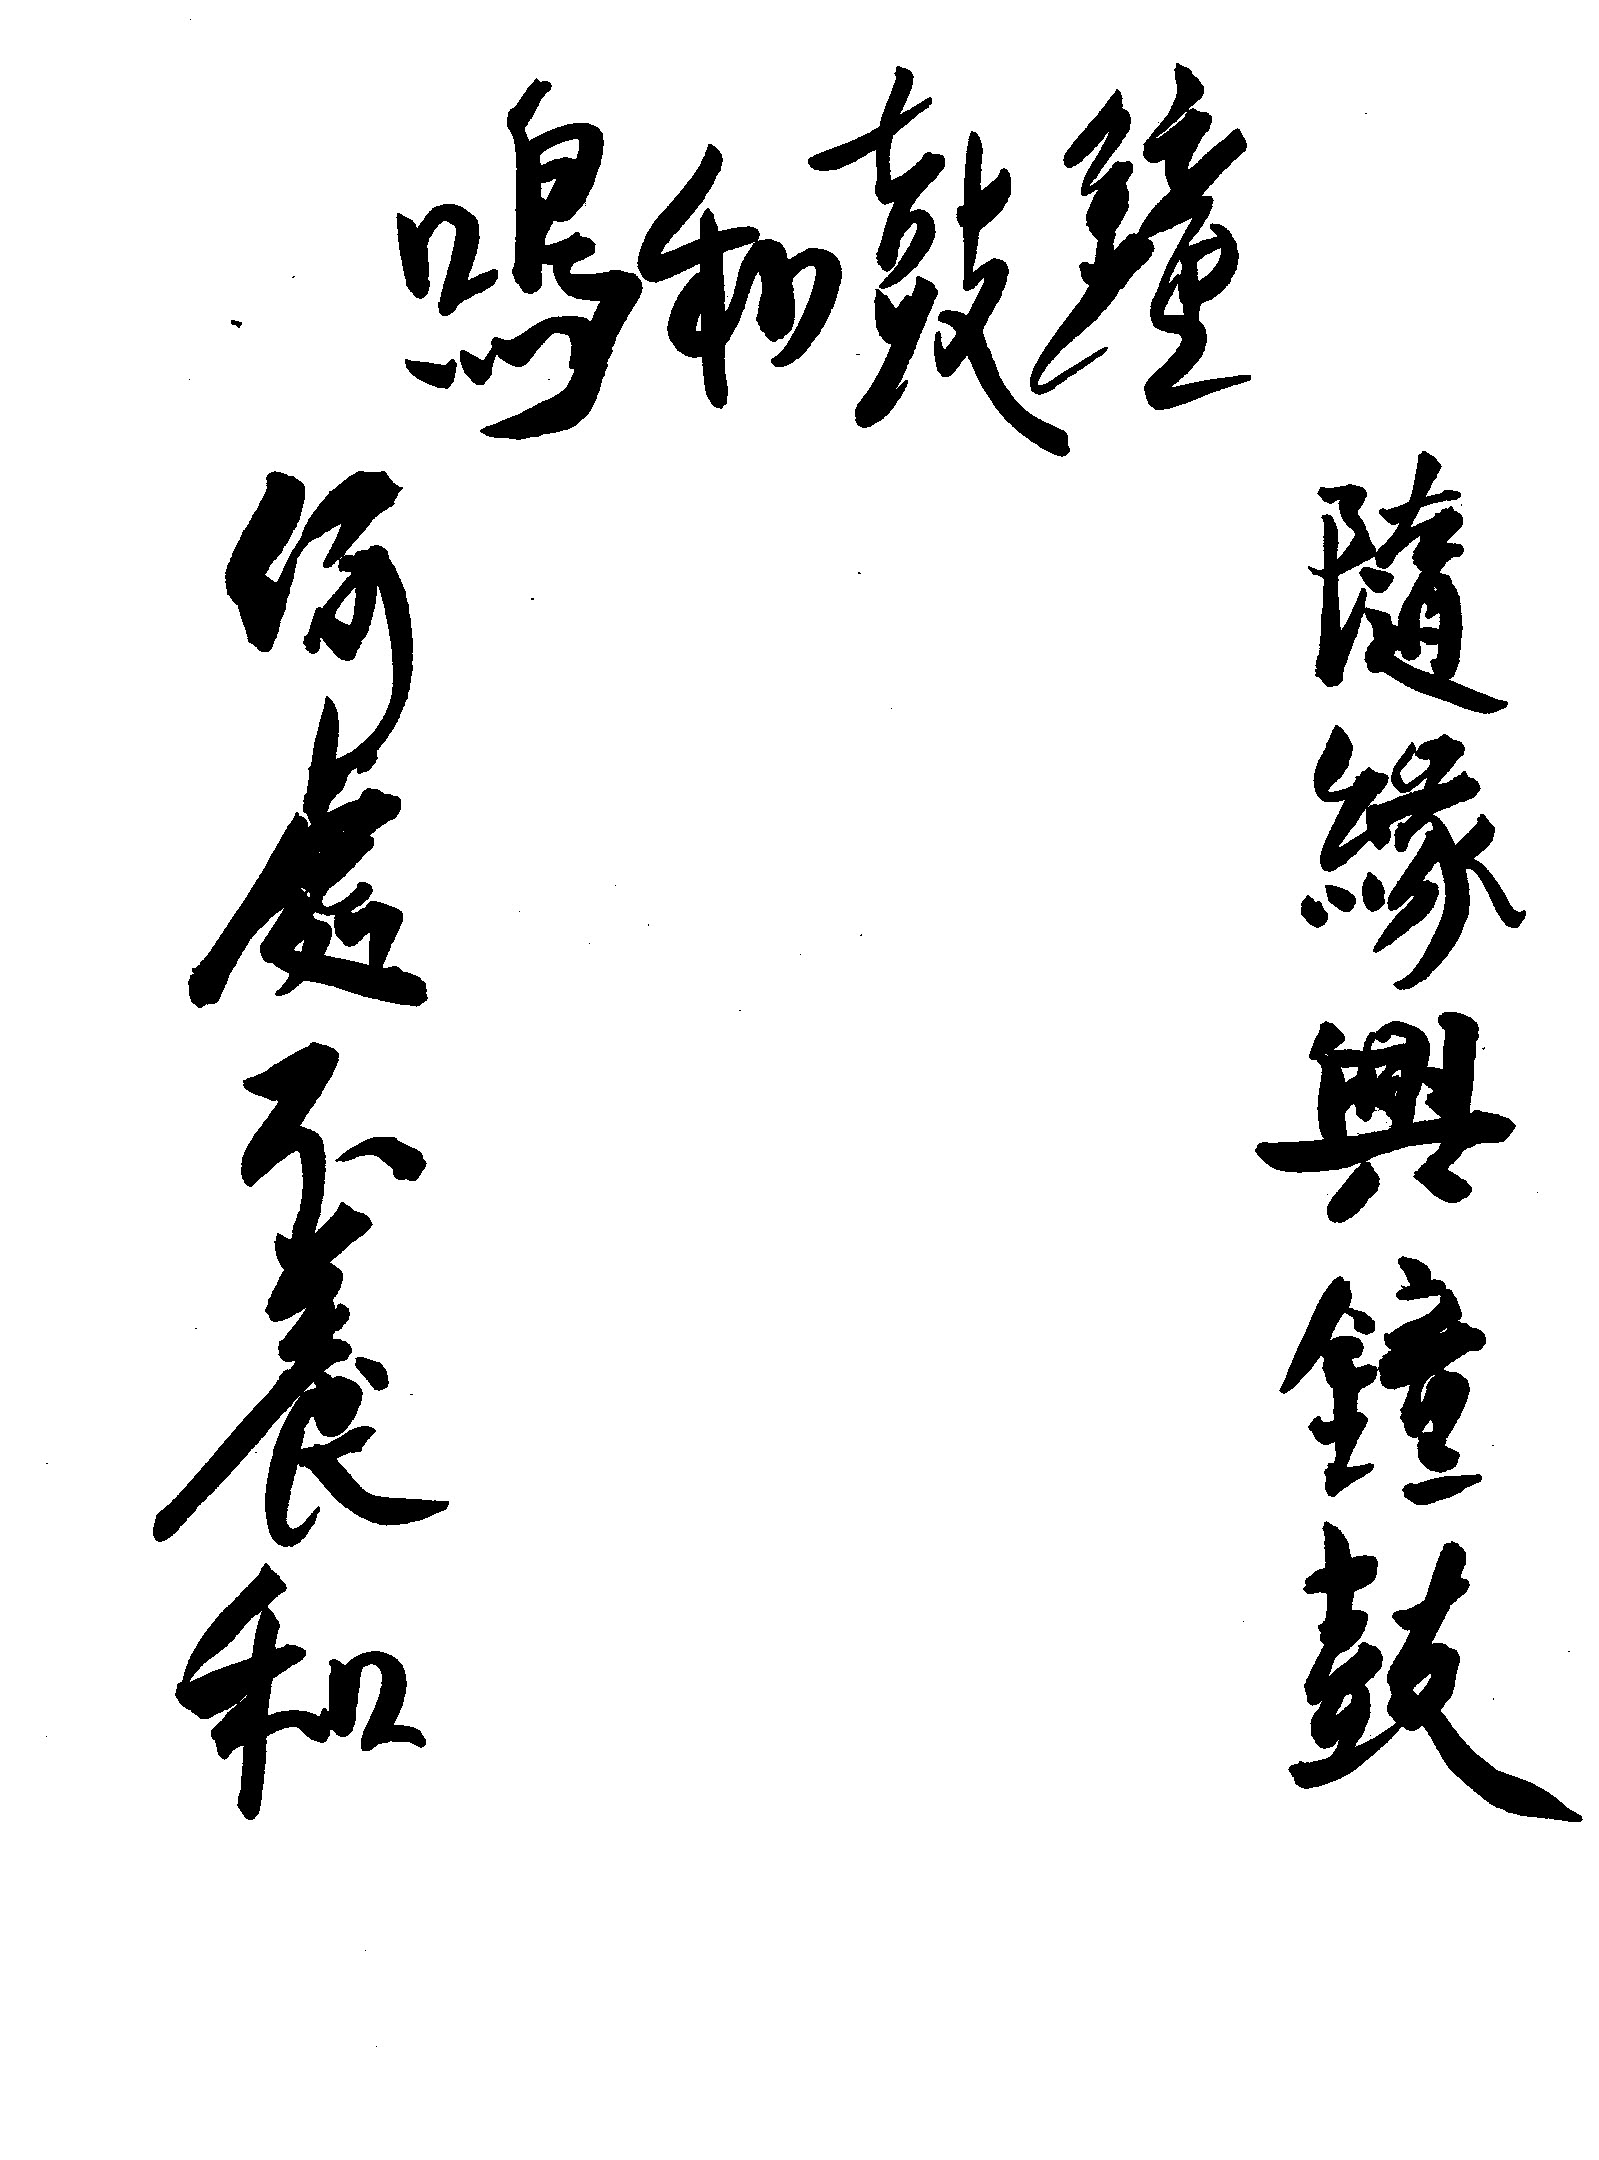 鐘鼓和鳴
隨緣興鐘鼓
何處不養和